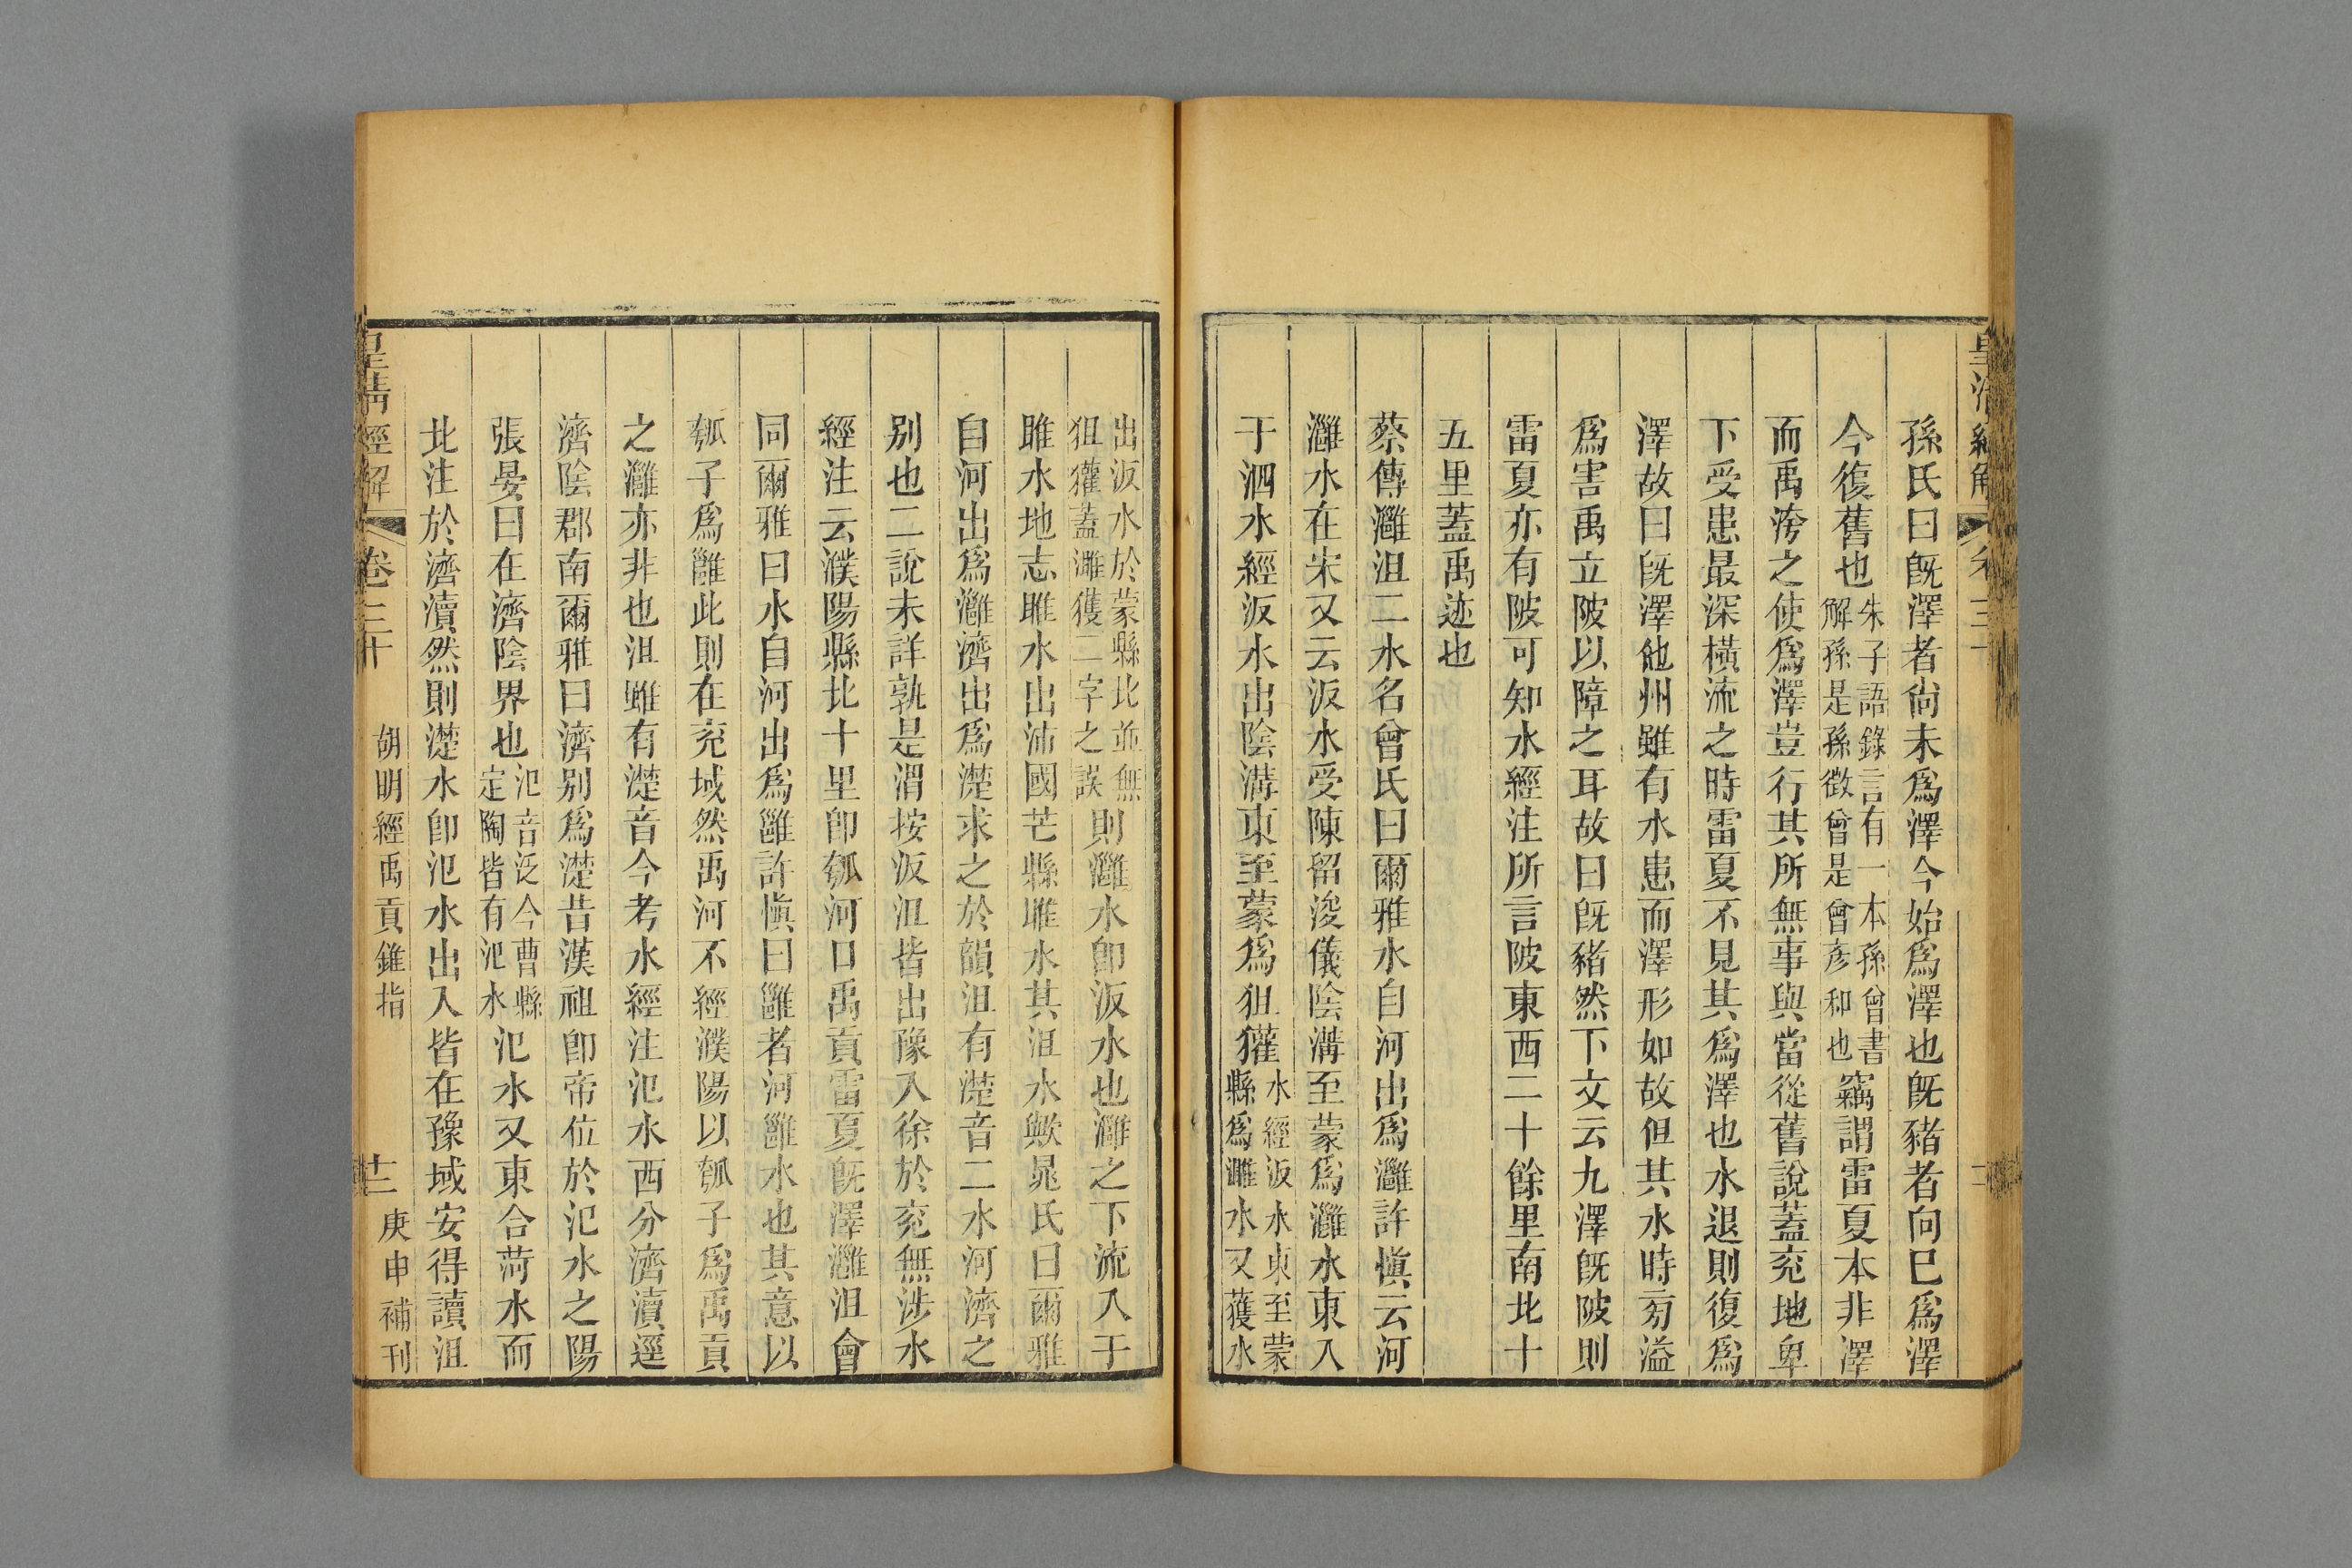 孫氏曰旣澤者尙未爲澤今始爲澤也旣豬者向巳爲澤
今復舊也朱子語錄言有一本孫曾書解孫是孫徵曾是曾彥和也竊謂雷夏本非澤
而禹洿之使爲澤豈行其所無事與當從舊說蓋兗地卑
下受患最深橫流之時雷夏不見其爲澤也水退則復爲
澤故曰旣澤他州雖有水患而澤形如故但其水時有溢
爲害禹立陂以障之耳故曰旣豬然下文云九澤旣陂則
雷夏亦有陂可知水經注所言陂東西二十餘里南北十
五里蓋禹迹也
蔡傳灉沮二水名曾氏曰爾雅水自河出爲灉許愼云河
灉水在宋又云汳水受陳留浚儀陰溝至蒙爲灉水東入
于泗水經汳水出陰溝東至蒙爲狙獾水經汳水東至蒙縣爲雝水又獲水
出汳水於蒙縣北並無狙獾蓋雝獲二字之誤則灉水卽汳水也灉之下流入于
睢水地志睢水出沛國芒縣睢水其沮水歟晁氏曰爾雅
自河出爲灉濟出爲濋求之於韻沮有濋音二水河濟之
别也二說未詳孰是渭按汳沮皆出豫入徐於兗無涉水
經注云濮陽縣北十里卽瓠河口禹貢雷夏旣澤灉沮會
同爾雅曰水自河出爲雝許愼曰雝者河雝水也其意以
瓠子爲雝此則在兗域然禹河不經濮陽以瓠子爲禹貢
之灉亦非也沮雖有濋音今考水經注氾水西分濟瀆逕
濟陰郡南爾雅曰濟别爲濋昔漢祖卽帝位於氾水之陽
張晏曰在濟陰界也氾音泛今曹縣定陶皆有氾水氾水又東合菏水而
北注於濟瀆然則濋水卽氾水出入皆在豫域安得讀沮
皇清經解 卷三十 胡明經禹貢錐指 十二 庚申補刊